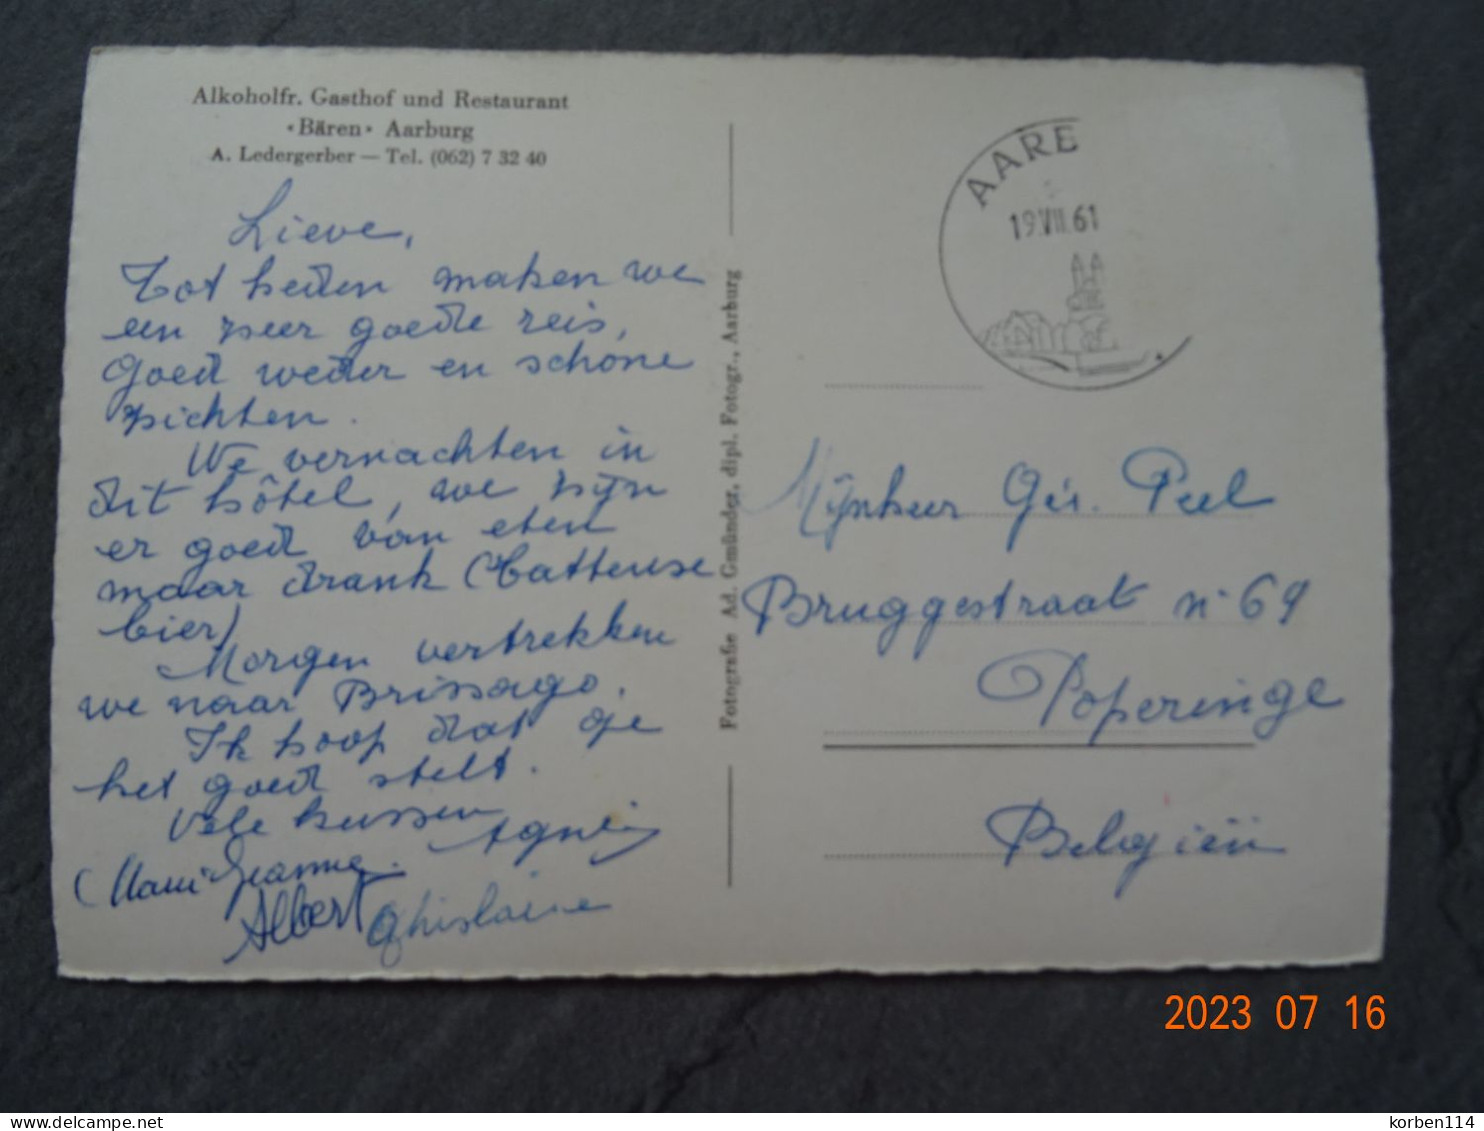 Alkoholfr. Gasthof und Restaurant
«Bären» Aarburg
A. Ledergerber — Tel. (062) 7 32 40
Lieve,
Tot heden maken we
een zeer goede reis,
goed weder en schone
zichten.
We vernachten in
dit hôtel, we zijn
er goed van eten
maar drank (Batteuse
bier)
Morgen vertrekken
we naar Brissago.
Ik hoop dat gje
het goed stelt.
Vele kussen
Agnès
Jeanne.
Albert Ghislaine
Fotografie Ad. Gmünder, dipl. Fotogr., Aarburg
AARE
19.VII.61
Mijnheer Gér. Peel
Bruggestraat n° 69
Poperinge
Belgïeïn
2023 07 16
delcampe.net
korben114